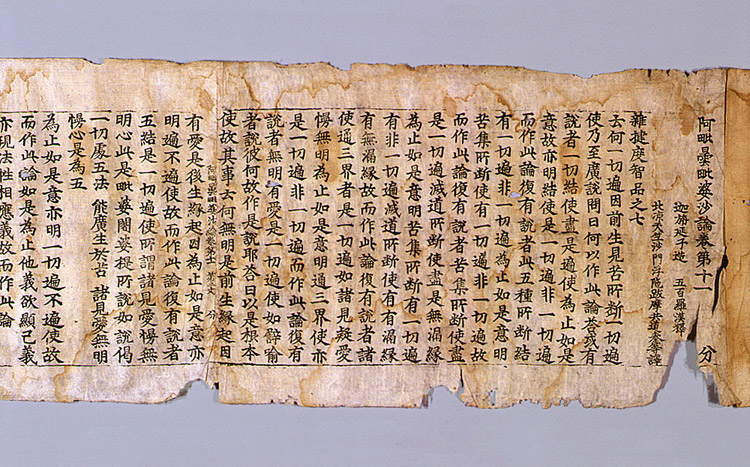 阿毗曇毗婆沙論卷第十一 分
迦旃延子造 五百羅漢釋
北涼天竺沙門浮陀跋摩共道泰等譯
雜揵度智品之七
云何一切遍因前生見苦所断一切遍
使乃至廣說問曰何以作此論荅或有
說者一切結使盡是遍使為止如是
意故亦明結使是一切遍非一切遍
而作此論復有說者此五種所断結
有一切遍非一切遍為止如是意明
苦集所断使有一切遍非一切遍故
而作此論復有說者苦集所断使盡
是一切遍滅道所断使盡是無漏緣
為止如是意明苦集所断有一切遍
有非一切遍滅道所断使有有漏緣
有無漏緣故而作此論復有說者諸
使通三界者是一切遍如諸見疑愛
慢無明為止如是意明通三界使亦
是一切遍非一切遍而作此論復有
說者無明有愛是一切遍使如辟喻
者說彼何故作是說耶荅曰以是根本
使故其事云何無明是前生緣起因
阿毗曇毗婆沙論卷第十一 分
有愛是後生緣起因為止如是意亦
明遍不遍使故而作此論復有說者
五結是一切遍使所謂諸見愛慢無
明心此是毗婆闍婆提所說如說偈
一切處五法 能廣生於苦 諸見愛無明
慢心是為五
為止如是意亦明一切遍不遍使故
而作此論如是為止他義欲顯己義
亦現法性相應義故而作此論